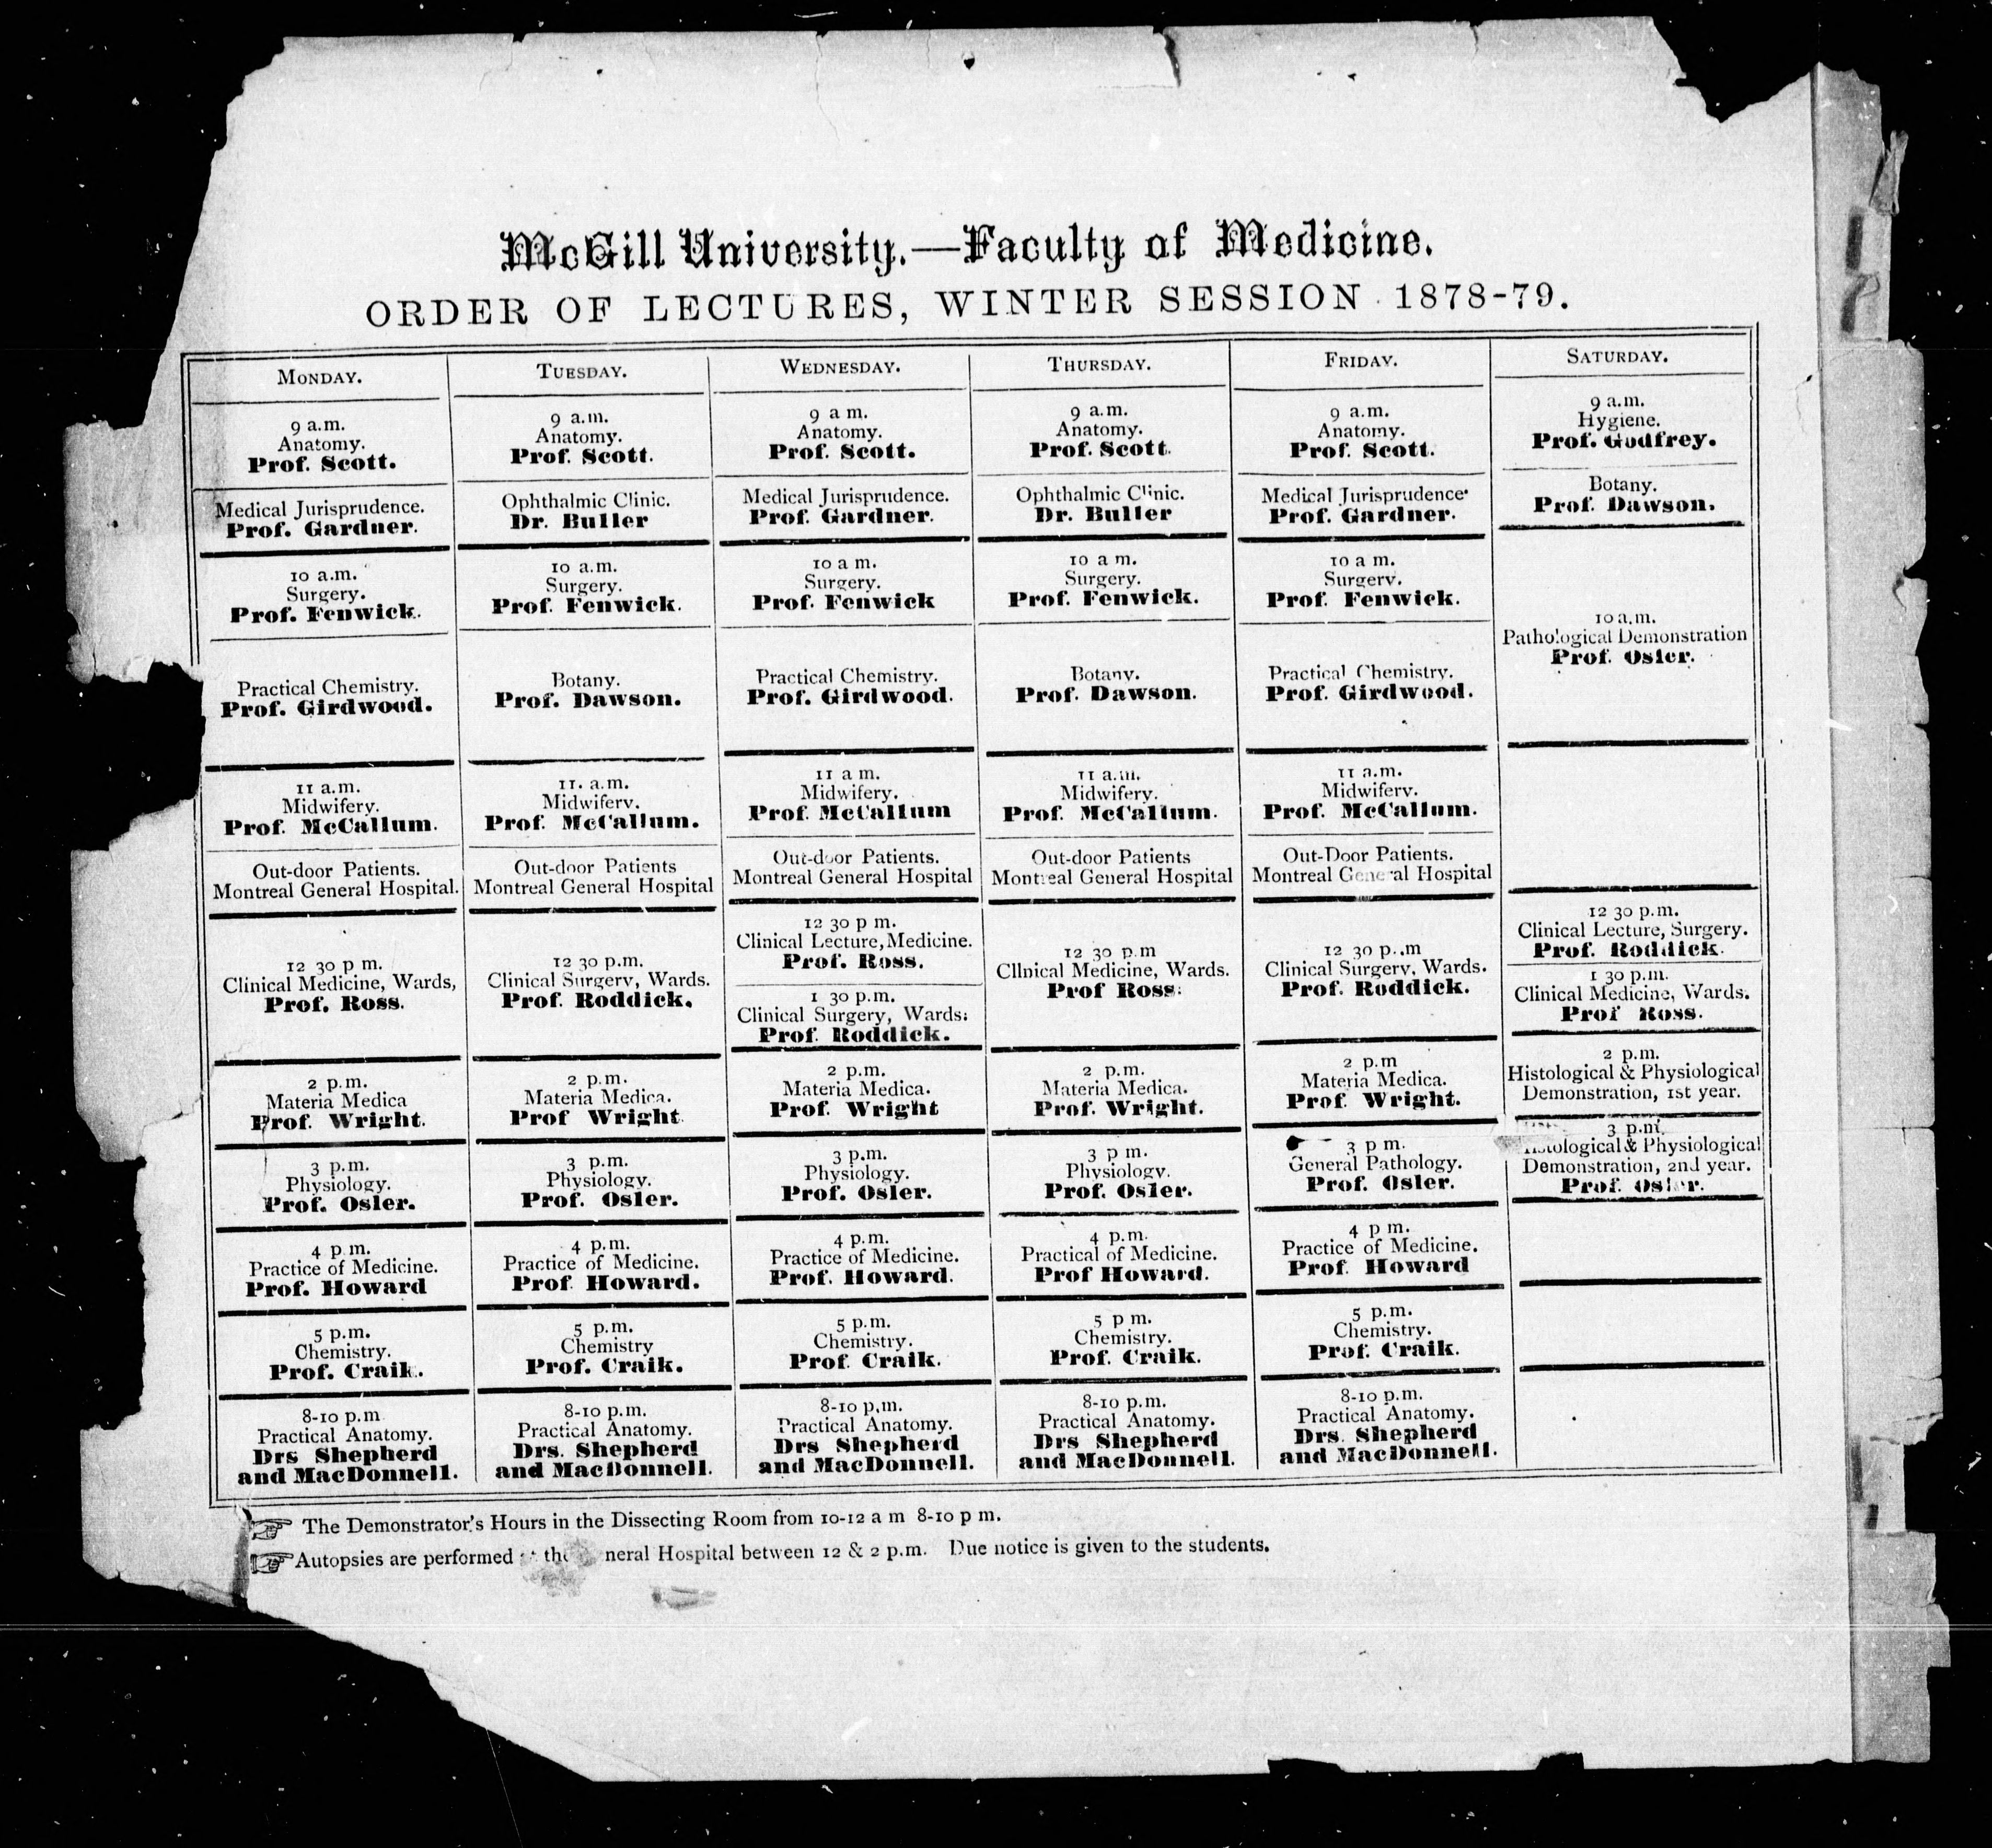 McGill University.—Faculty of Medicine.
ORDER OF LECTURES, WINTER SESSION 1878-79.
MONDAY.
9 a.m.
Anatomy.
Prof. Scott.
Medical Jurisprudence.
Prof. Gardner.
10 a.m.
Surgery.
Prof. Fenwick.
Practical Chemistry.
Prof. Girdwood.
11 a.m.
Midwifery.
Prof. McCallum.
Out-door Patients.
Montreal General Hospital.
12 30 p m.
Clinical Medicine, Wards,
Prof. Ross.
2 p.m.
Materia Medica
Prof. Wright.
3 p.m.
Physiology.
Prof. Osler.
4 p.m.
Practice of Medicine.
Prof. Howard
5 p.m.
Chemistry.
Prof. Craik.
8-10 p.m
Practical Anatomy.
Drs Shepherd
and MacDonnell.
TUESDAY.
9 a.m.
Anatomy.
Prof. Scott.
Ophthalmic Clinic.
Dr. Buller
10 a.m.
Surgery.
Prof. Fenwick.
Botany.
Prof. Dawson.
11. a.m.
Midwifery.
Prof. McCallum.
Out-door Patients
Montreal General Hospital
12 30 p.m.
Clinical Surgery, Wards.
Prof. Roddick.
2 p.m.
Materia Medica.
Prof Wright
3 p.m.
Physiology.
Prof. Osler.
4 p.m.
Practice of Medicine.
Prof Howard.
5 p.m.
Chemistry
Prof. Craik.
8-10 p.m.
Practical Anatomy.
Drs. Shepherd
and MacDonnell.
WEDNESDAY.
9 a m.
Anatomy.
Prof. Scott.
Medical Jurisprudence.
Prof. Gardner.
10 a m.
Surgery.
Prof. Fenwick
Practical Chemistry.
Prof. Girdwood.
11 a m.
Midwifery.
Prof McCallum
Out-door Patients.
Montreal General Hospital
12 30 p m.
Clinical Lecture, Medicine.
Prof. Ross.
1 30 p.m.
Clinical Surgery, Wards:
Prof. Roddick.
2 p.m.
Materia Medica.
Prof. Wright
3 p.m.
Physiology.
Prof. Osler.
4 p.m.
Practice of Medicine.
Prof. Howard.
5 p.m.
Chemistry.
Prof. Craik.
8-10 p.m.
Practical Anatomy.
Drs Shepherd
and MacDonnell.
THURSDAY.
9 a.m.
Anatomy.
Prof. Scott.
Ophthalmic Clinic.
Dr. Buller
10 a m.
Surgery.
Prof. Fenwick.
Botany.
Prof. Dawson.
11 a.m.
Midwifery.
Prof. McCallum.
Out-door Patients
Montreal General Hospital
12 30 p.m
Clinical Medicine, Wards.
Prof Ross:
2 p.m.
Materia Medica.
Prof. Wright.
3 p m.
Physiology.
Prof. Osler.
4 p.m.
Practical of Medicine.
Prof Howard.
5 p m.
Chemistry.
Prof. Craik.
8-10 p.m.
Practical Anatomy.
Drs Shepherd
and MacDonnell.
FRIDAY.
9 a.m.
Anatomy.
Prof. Scott.
Medical Jurisprudence.
Prof. Gardner.
10 a m.
Surgery.
Prof. Fenwick.
Practical Chemistry.
Prof. Girdwood.
11 a.m.
Midwifery.
Prof. McCallum.
Out-Door Patients.
Montreal General Hospital
12 30 p..m
Clinical Surgery, Wards.
Prof. Roddick.
2 p.m
Materia Medica.
Prof. Wright.
3 p m.
General Pathology.
Prof. Osler.
4 p m.
Practice of Medicine.
Prof. Howard
5 p.m.
Chemistry.
Prof. Craik.
8-10 p.m.
Practical Anatomy.
Drs. Shepherd
and MacDonnell.
SATURDAY.
9 a.m.
Hygiene.
Prof. Godfrey.
Botany.
Prof. Dawson.
10 a.m.
Pathological Demonstration
Prof. Osler.
12 30 p.m.
Clinical Lecture, Surgery.
Prof. Roddick.
1 30 p.m.
Clinical Medicine, Wards.
Prof Ross.
2 p.m.
Histological & Physiological
Demonstration, 1st year.
3 p.m.
& Physiological
Demonstration, 2nd year.
Prof. Osler.
The Demonstrator's Hours in the Dissecting Room from 10-12 a m 8-10 p m.
Autopsies are performed Hospital between 12 & 2 p.m. Due notice is given to the students.